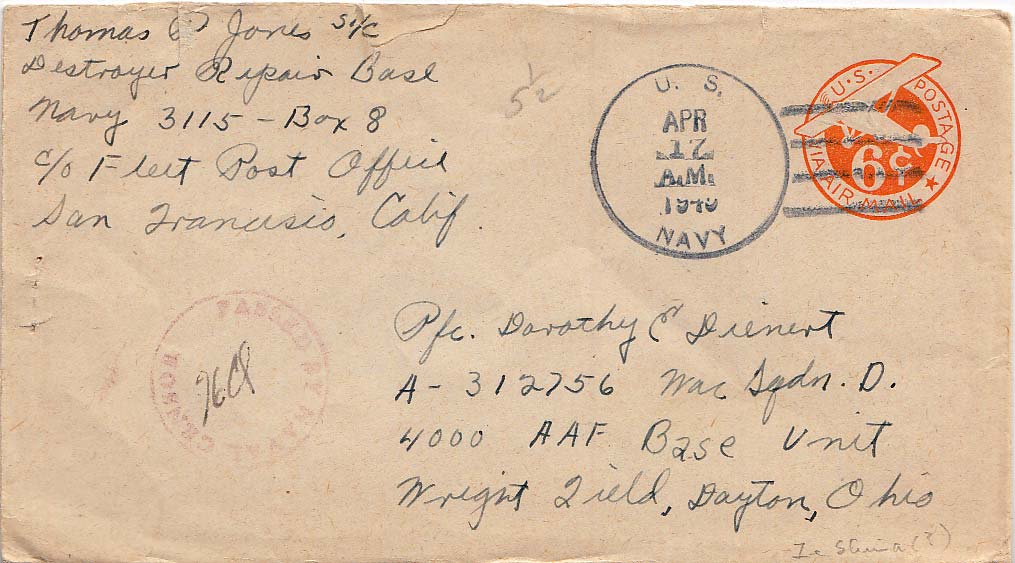 Thomas P Jones S1/c
Destroyer Repair Base
Navy 3115 - Box 8
c/o Fleet Post Office
San Francisio, Calif.
5 1/2
U. S.
APR
17
A.M.
NAVY
U.S. POSTAGE
6¢
VIA AIR MAIL
PASSED BY NAVAL CENSOR
Pfc. Dorothy E Dienert
A-312756 Wac Sqdn. D.
4000 AAF Base Unit
Wright Field, Dayton, Ohio
Ie Shima (?)